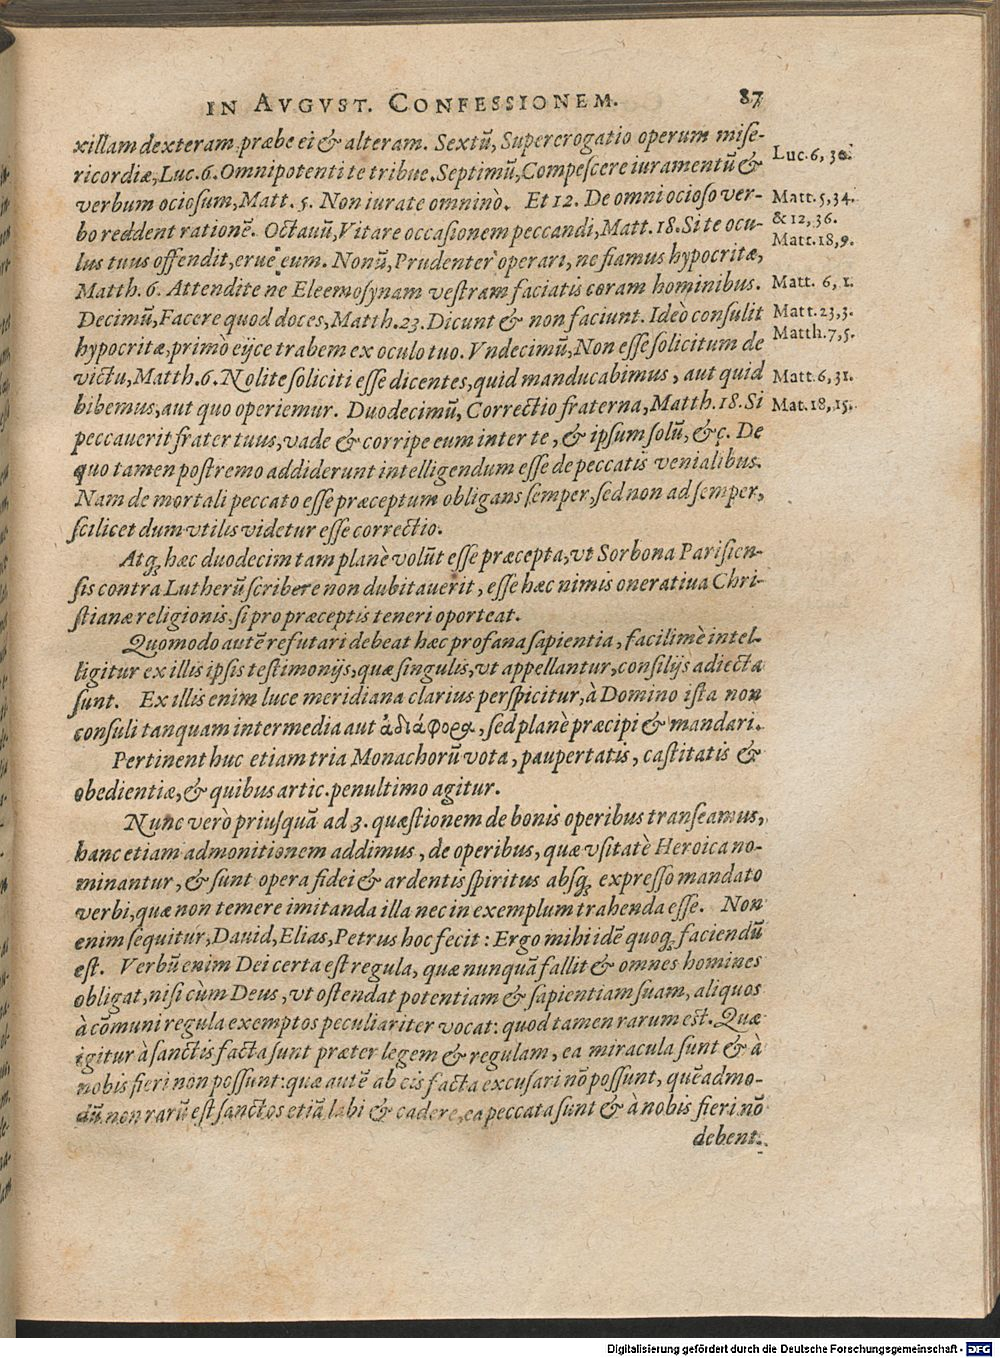 IN AVGVST. CONFESSIONEM. 87
xillam dexteram, præbe ei & alteram. Sextũ, Supererogatio operum mise-
ricordiæ, Luc. 6. Omnipotenti te tribue. Septimũ, Compescere iuramentũ &
verbum ociosum, Matt. 5. Non iurate omninò. Et 12. De omni ocioso ver-
bo reddent rationẽ. Octauũ, Vitare occasionem peccandi, Matt. 18. Si te ocu-
lus tuus offendit, erue eum. Nonũ, Prudenter operari, ne fiamus hypocritæ,
Matth. 6. Attendite ne Eleemosynam vestram faciatis coram hominibus.
Decimũ, Facere quod doces, Matth. 23. Dicunt & non faciunt. Ideò consulit
hypocritæ, primò eijce trabem ex oculo tuo. Vndecimũ, Non esse solicitum de
victu, Matth. 6. Nolite soliciti esse dicentes, quid manducabimus, aut quid
bibemus, aut quo operiemur. Duodecimũ, Correctio fraterna, Matth. 18. Si
peccauerit frater tuus, vade & corripe eum inter te, & ipsum solũ, &c. De
quo tamen postremo addiderunt intelligendum esse de peccatis venialibus.
Nam de mortali peccato esse præceptum obligans semper, sed non ad semper,
scilicet dum vtilis videtur esse correctio.
Atq; hæc duodecim tam planè volũt esse præcepta, vt Sorbona Parisien-
sis contra Lutherũ scribere non dubitauerit, esse hæc nimis oneratiua Chri-
stianæ religionis, si pro præceptis teneri oporteat.
Quomodo autẽ refutari debeat hæc profana sapientia, facilimè intel-
ligitur ex illis ipsis testimonijs, quæ singulis, vt appellantur, consilijs adiecta
sunt. Ex illis enim luce meridiana clarius perspicitur, à Domino ista non
consuli tanquam intermedia aut ἀδιάφορα, sed planè præcipi & mandari.
Pertinent huc etiam tria Monachorũ vota, paupertatis, castitatis &
obedientiæ, & quibus artic. penultimo agitur.
Nunc verò priusquã ad 3. quæstionem de bonis operibus transeamus,
hanc etiam admonitionem addimus, de operibus, quæ vsitatè Heroica no-
minantur, & sunt opera fidei & ardentis spiritus absq; expresso mandato
verbi, quæ non temere imitanda illa nec in exemplum trahenda esse. Non
enim sequitur, Dauid, Elias, Petrus hoc fecit: Ergo mihi idẽ quoq; faciendũ
est. Verbũ enim Dei certa est regula, quæ nunquã fallit & omnes homines
obligat, nisi cùm Deus, vt ostendat potentiam & sapientiam suam, aliquos
à cõmuni regula exemptos peculiariter vocat: quod tamen rarum est. Quæ
igitur à sanctis facta sunt præter legem & regulam, ea miracula sunt & à
nobis fieri non possunt: quæ autẽ ab eis facta excusari nõ possunt, quẽadmo-
dũ non rarũ est sanctos etiã labi & cadere, ea peccata sunt & à nobis fieri nõ
debent.
Luc. 6, 30.
Matt. 5, 34.
& 12, 36.
Matt. 18, 9.
Matt. 6, 1.
Matt. 23, 3.
Matth. 7, 5.
Matt. 6, 31.
Mat. 18, 15.
Digitalisierung gefördert durch die Deutsche Forschungsgemeinschaft - DFG